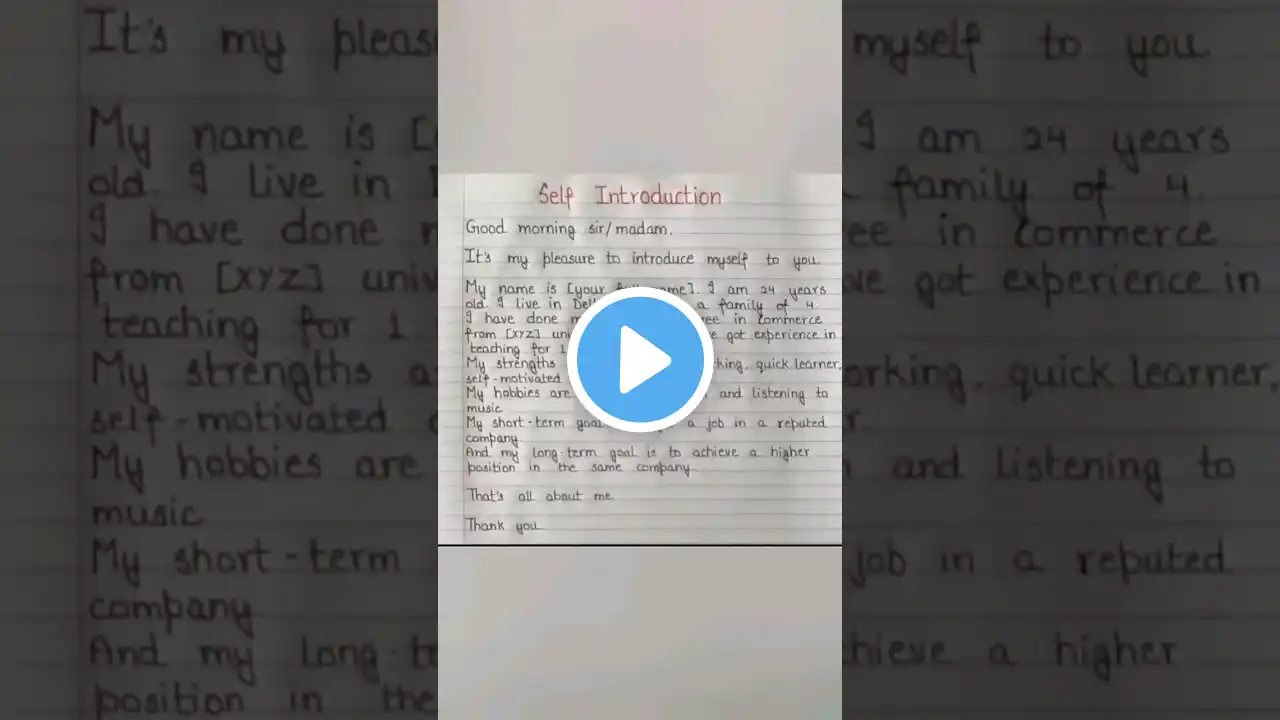 Self Introduction
Good morning sir/madam.
It's my pleasure to introduce myself to you.
My name is [your name]. I am 24 years
old. I live in a family of 4.
I have done in Commerce
from [XYZ] got experience in
teaching for 1
My strengths quick learner,
self-motivated
My hobbies are and listening to
music
My short-term goal a job in a reputed
company
And my long-term goal is to achieve a higher
position in the same company
That's all about me
Thank you